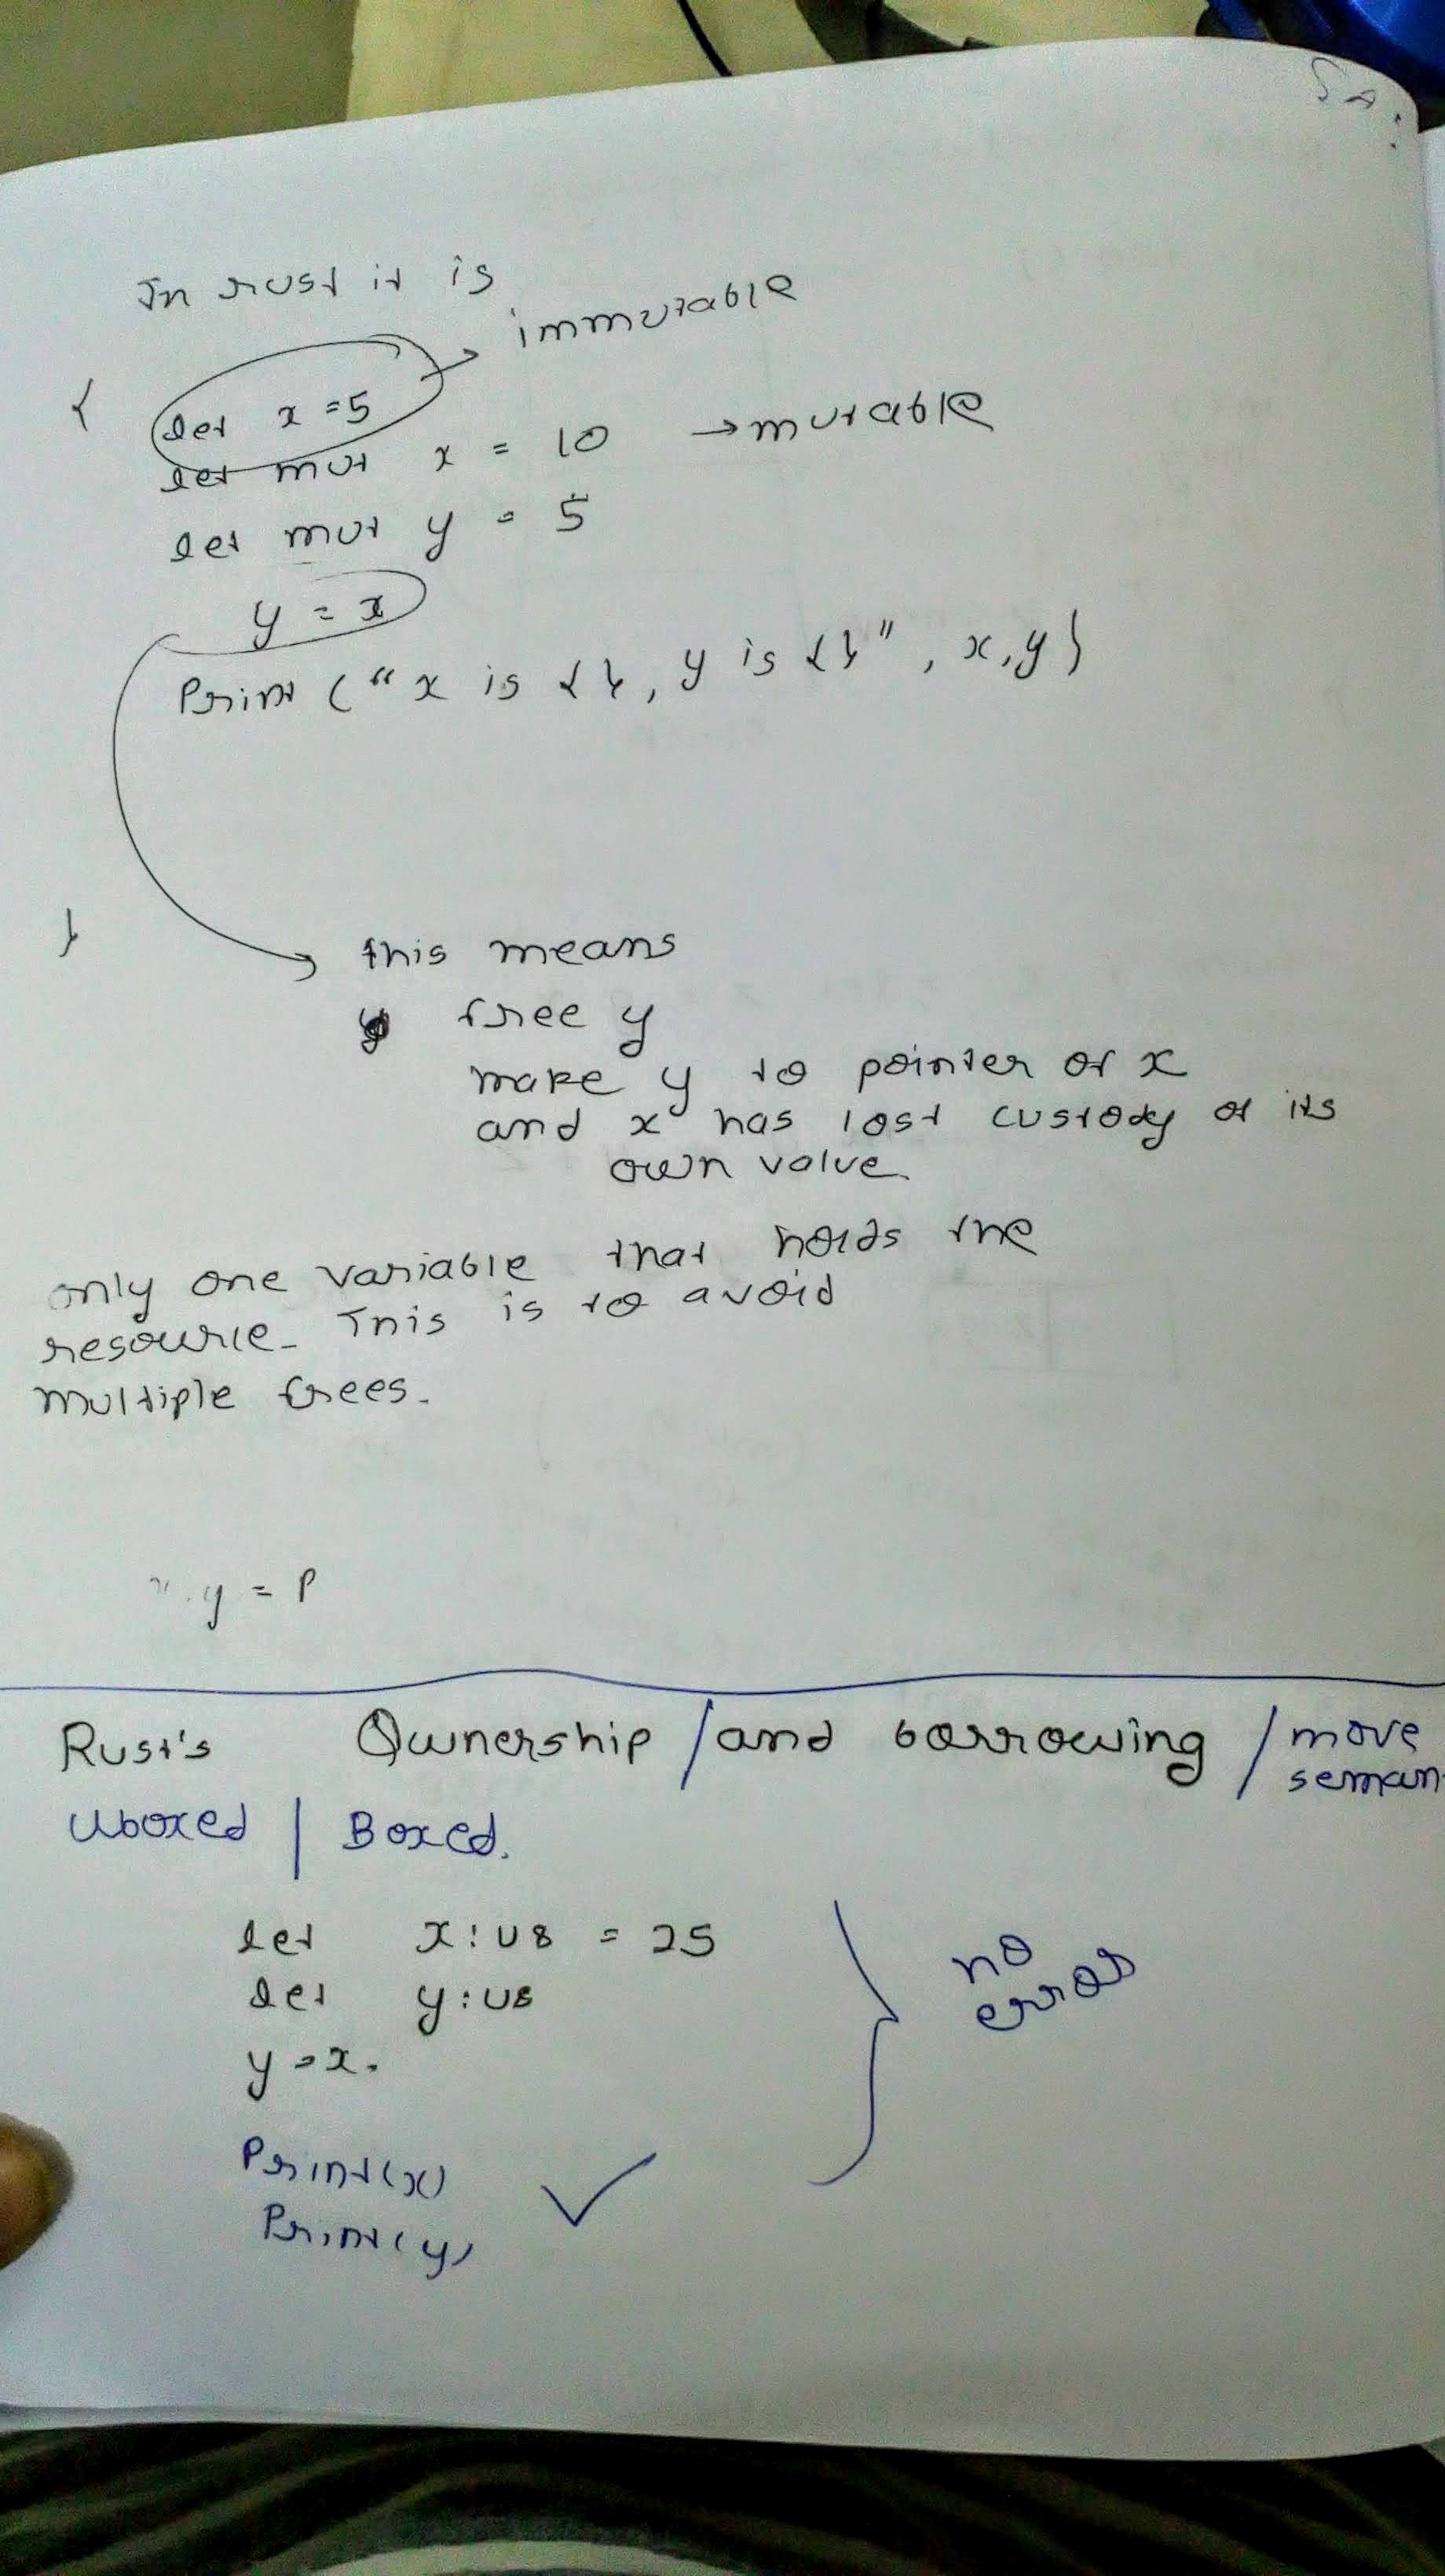 In rust it is
immutable
{
let x = 5
let mut x = 10 → mutable
let mut y = 5
y = x
Print ("x is {}, y is {}", x, y)
}
this means
free y
make y to pointer of x
and x has lost custody of its
own value.
only one variable that holds the
resource. This is to avoid
multiple frees.
y = P
Rust's Ownership / and borrowing / move
seman
Uboxed | Boxed.
let x : u8 = 25
let y : u8
y = x.
no
error
Print(x)
Print(y)